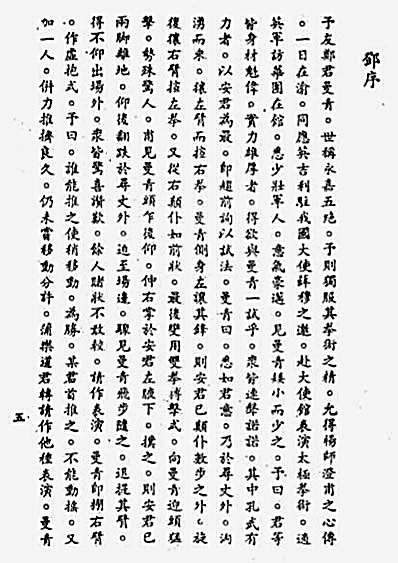 鄧序
予友鄭君曼青。世稱永嘉五絕。予則獨服其拳術之精。允得楊師澄甫之心傳
。一日在渝。同應英吉利駐我國大使薛穆之邀。赴大使館表演太極拳術。適
英軍訪華團在館。悉少壯軍人。意氣豪邁。見曼青矮小而少之。予曰。君等
皆身材魁偉。實力雄厚者。得欲與曼青一試乎。衆皆連聲諾諾。其中孔武有
力者。以安君為最。即趨前詢以試法。曼青曰。悉如君意。乃於尋丈外。洶
湧而來。攘左臂而揎右拳。曼青側身左讓其鋒。則安君已顛仆數步之外。旋
復攘右臂揎左拳。又從右顛仆如前狀。最後變用雙拳搏擊式。向曼青迎頭猛
擊。勢殊驚人。甫見曼青頭乍後仰。伸右掌於安君左腋下。撲之。則安君已
兩脚離地。仰後翻跌於尋丈外。迫至場邊。驟見曼青飛步隨之。迅捉其臂。
得不仰出場外。衆皆驚喜讚歎。餘人睹狀不敢較。請作表演。曼青即掤右臂
。作虛抱式。予曰。誰能推之使稍移動。為勝。某君首推之。不能動搖。又
加一人。併力推擠良久。仍未嘗移動分許。蒲樂道君轉請作他種表演。曼青
五